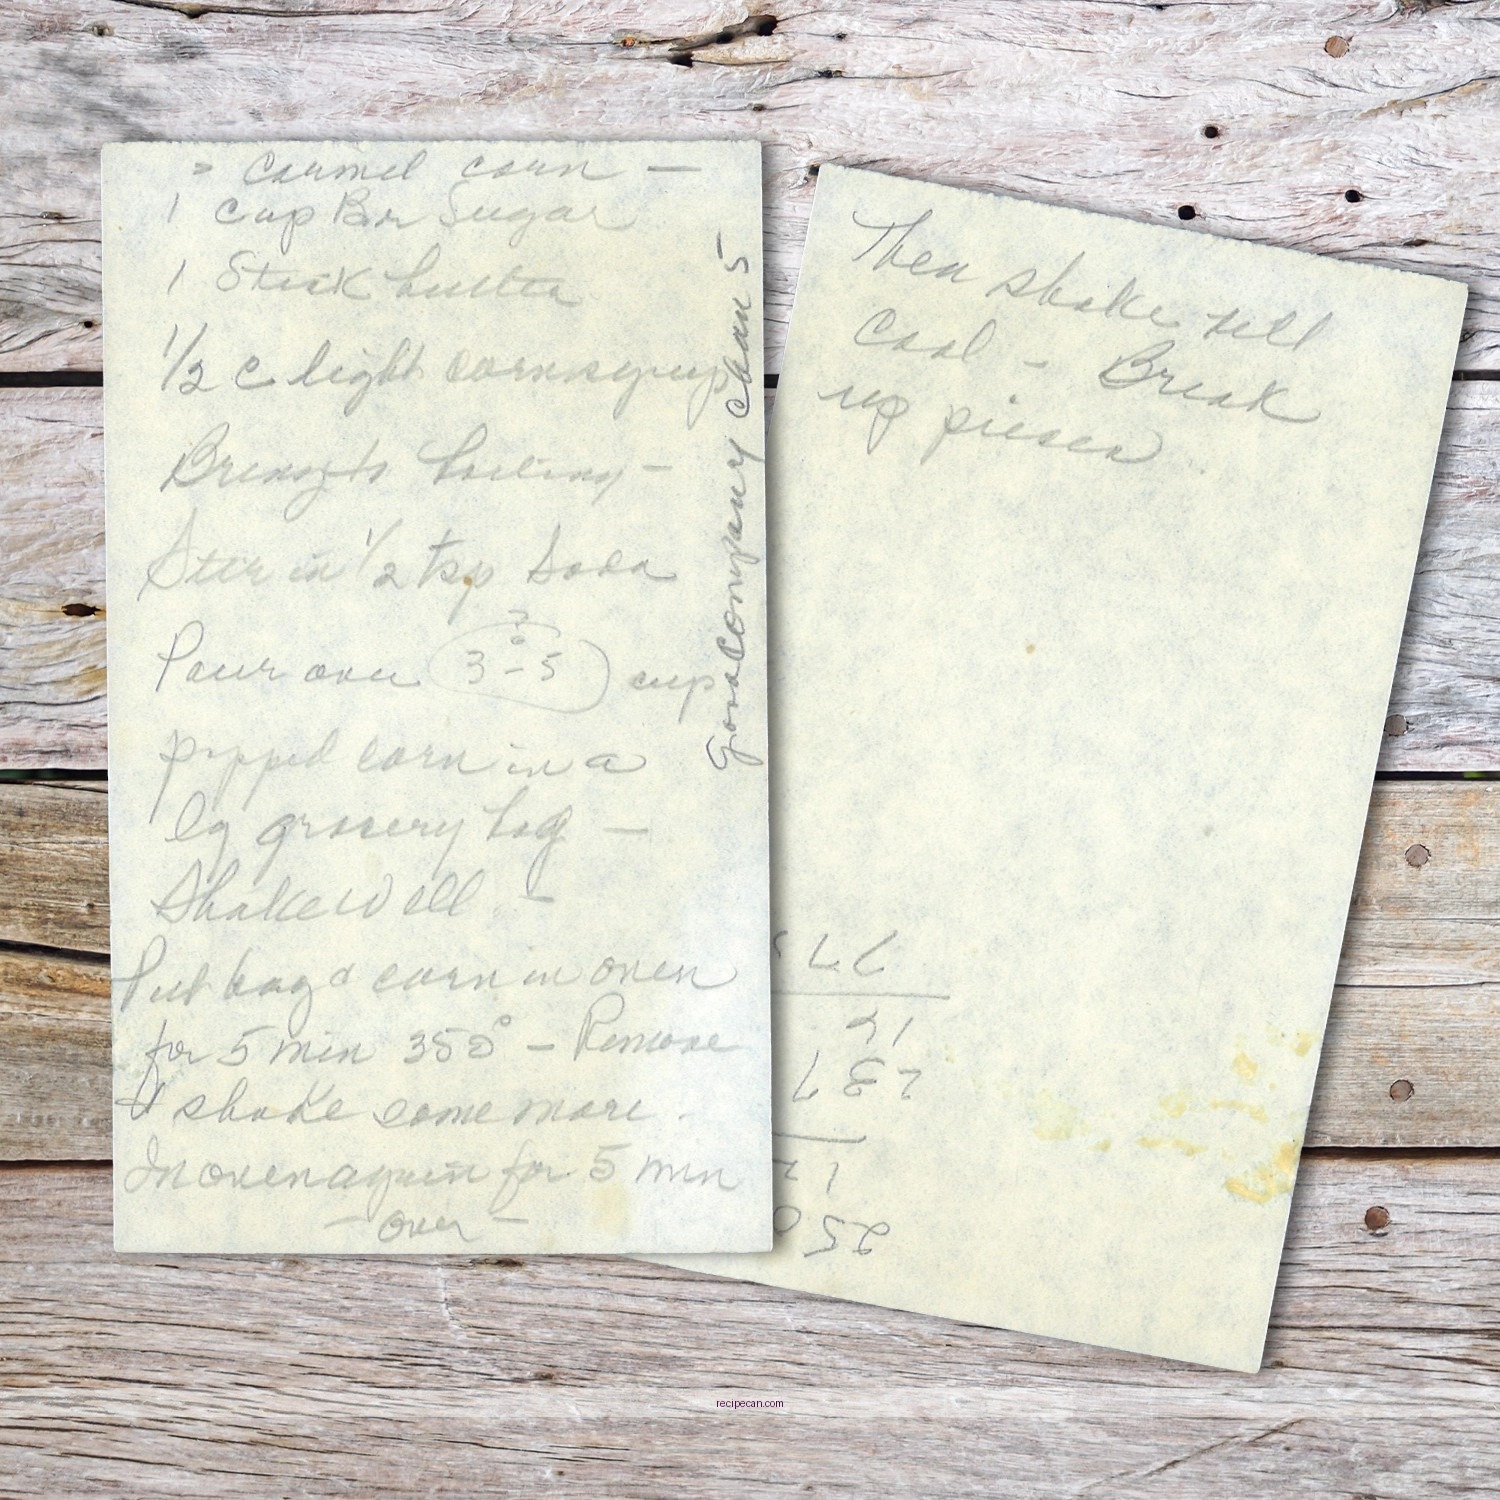 Carmel corn —
1 cup Br Sugar
1 Stick butter
1/2 c light corn syrup
Bring to boiling —
Stir in 1/2 tsp Soda
Pour over 3-5 cup
popped corn in a
lg grocery bag —
Shake well —
Put bag & corn in oven
for 5 min 350° — Remove
& shake some more.
In oven again for 5 min
— over —
Good Company Chan 5
Then shake till
Cool - Break
up pieces
250
12
237
12
recipecan.com